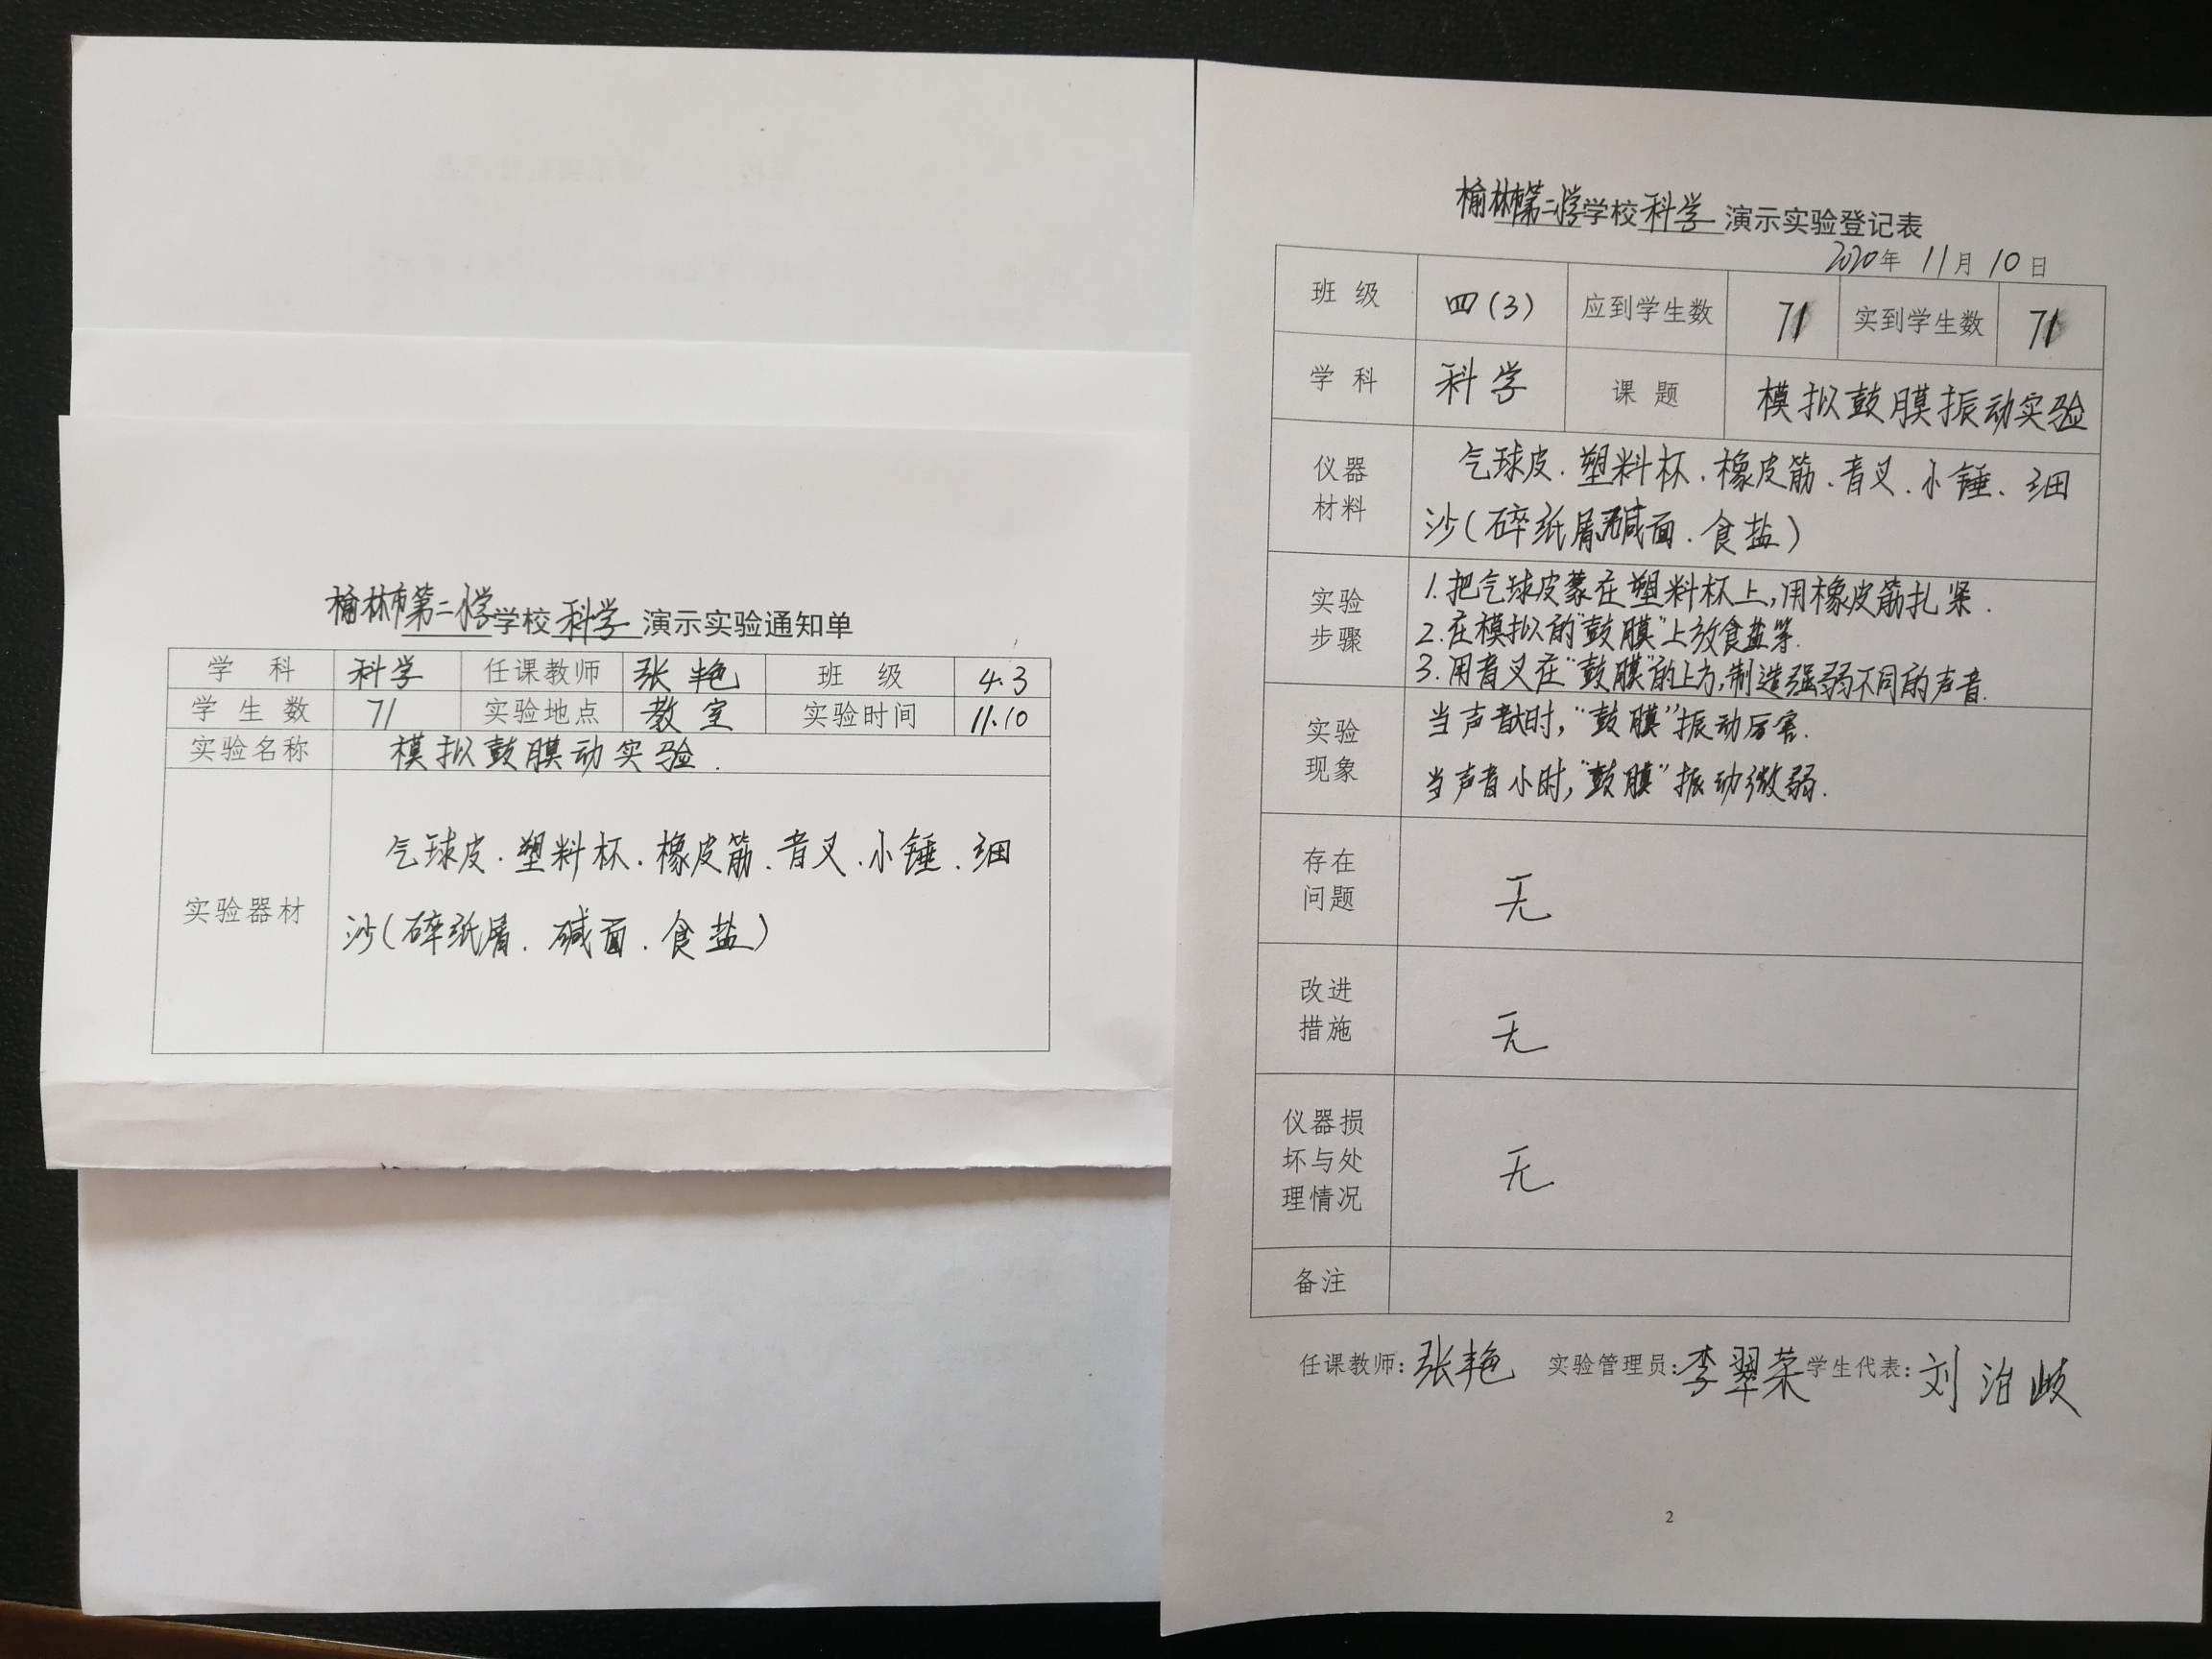 榆林市第二小学学校科学演示实验通知单
学 科 科学 任课教师 张艳 班 级 4.3
学 生 数 71 实验地点 教室 实验时间 11.10
实验名称 模拟鼓膜动实验.
实验器材
气球皮.塑料杯.橡皮筋、音叉.小锤.细
沙(碎纸屑.碱面.食盐)
榆林市第二小学学校科学演示实验登记表
2020年 11月 10日
班 级 四(3) 应到学生数 71 实到学生数 71
学 科 科学 课 题 模拟鼓膜振动实验
仪器
材料
气球皮.塑料杯.橡皮筋、音叉.小锤、细
沙(碎纸屑 碱面.食盐)
实验
步骤
1.把气球皮蒙在塑料杯上,用橡皮筋扎紧.
2.在模拟的"鼓膜"上放食盐等.
3.用音叉在"鼓膜"的上方,制造强弱不同的声音.
实验
现象
当声音大时,"鼓膜"振动厉害.
当声音小时,"鼓膜"振动微弱.
存在
问题
无
改进
措施
无
仪器损
坏与处
理情况
无
备注
任课教师:张艳 实验管理员:李翠荣 学生代表:刘治岐
2